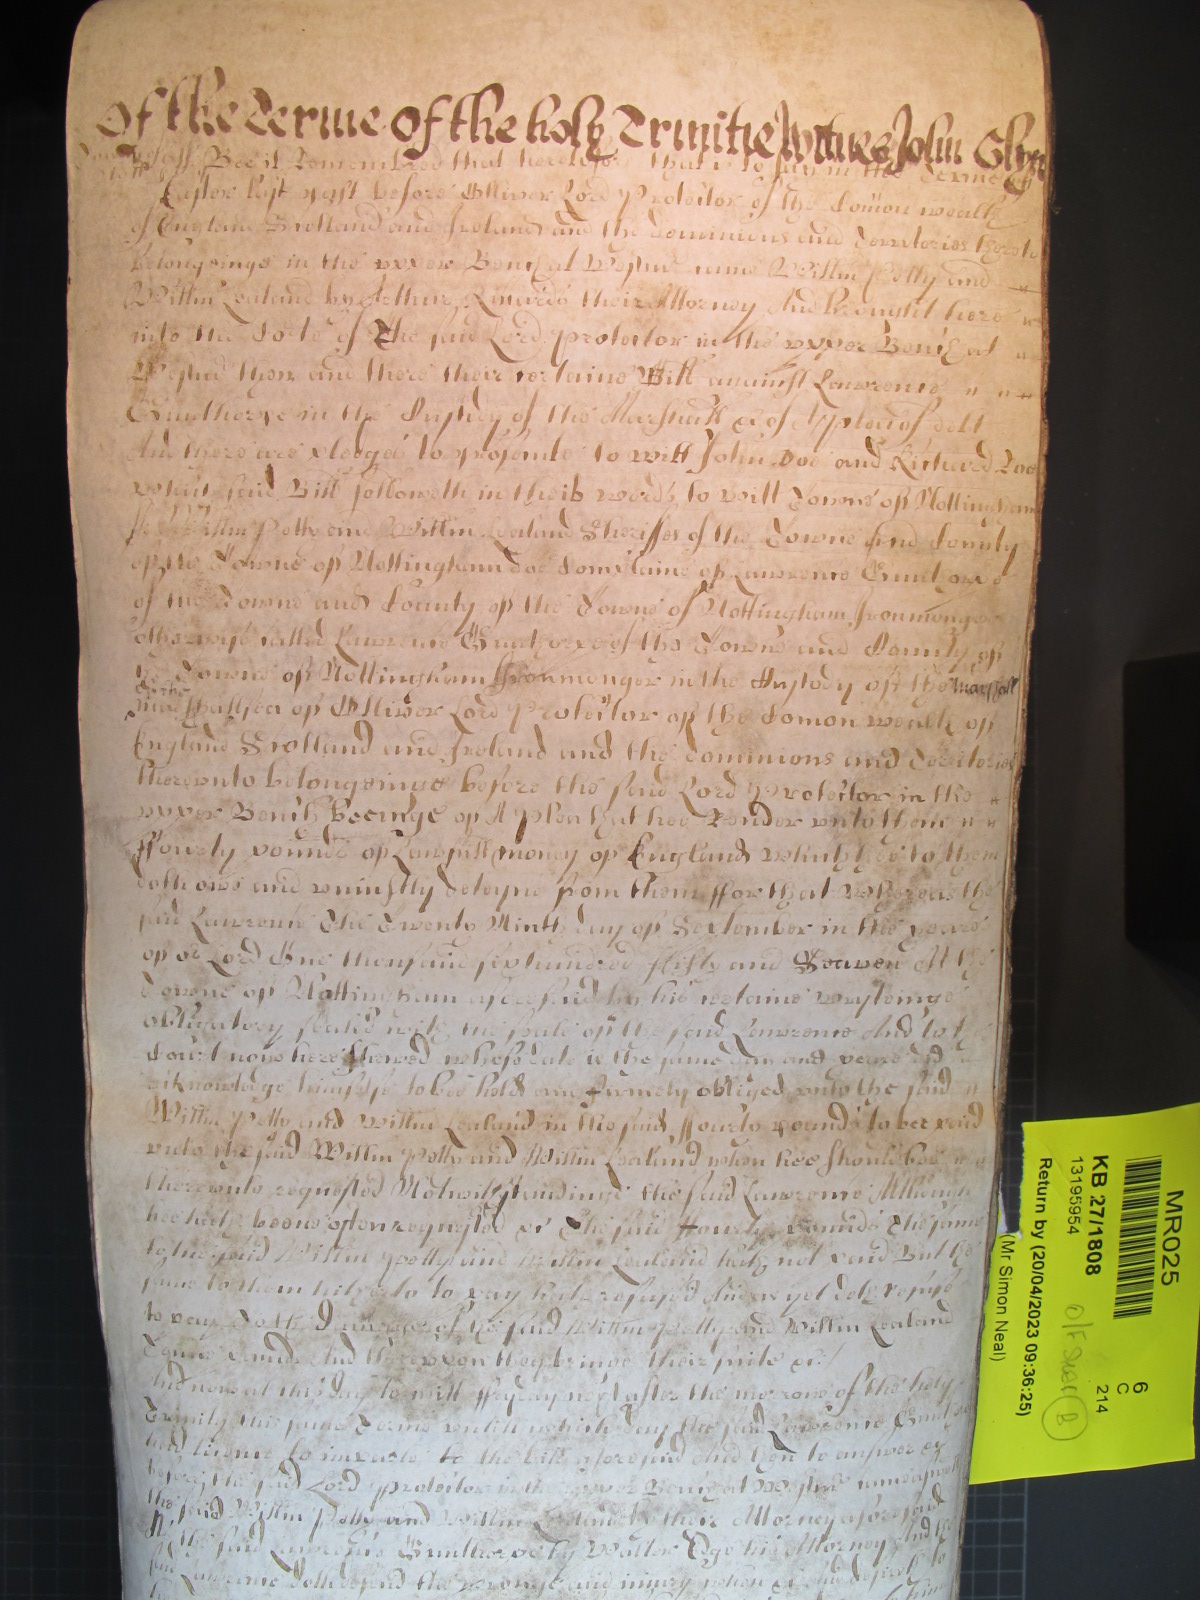 Of the Terme of the holy Trinitie Witnes John Glyn
Bee it Remembred that heretofore that is to say in the Terme of
Easter last past before Olliver Lord Protector of the Comon wealth
of England Scotland and Ireland and the dominions and Territories thereto
belongeinge in the vpper Bench at Westmr came Willm Petty and
Willm Lealand by Arthur Rinards their Attorney And brought here
into the Corte of The said Lord protector in the vpper Bench at
Westmr then and there their certaine Bill against Lawrence
Gunthorpe in the Custody of the Marshall &c of A plea of debt
And there are pledges to prosecute to witt John Doe and Richard Roe
which said Bill followeth in theis words to witt Towne of Nottingham
ss Willm Petty and Willm Lealand Sheriffes of the Towne and County
of the Towne of Nottingham doe Complaine of Lawrence Gunthorpe
of the Towne and County of the Towne of Nottingham Ironmonger
otherwyse called Lawrence Gunthorpe of the Towne and County of
the Towne of Nottingham Ironmonger in the Custody of the Marshall
of the
marshallsea of Olliver Lord Protector of the Comon wealth of
England Scotland and Ireland and the dominions and Territories
therevnto belongeinge before the said Lord Protector in the
vpper Bench beeinge of A Plea that hee Render vnto them
ffourty pounds of Lawfull money of England which hee to them
doth owe and vniustly deteyne from them ffor that Whereas the
said Lawrence The Twenty Ninth day of September in the yeare
of or Lord One thousand six hundred ffifty and Seaven At the
Towne of Nottingham aforesaid by his certaine wryteinge
obligatory sealed with the seale of the said Lawrence And to the
Court now here shewed whose date is the same day and yeare did
acknowledge himselfe to bee held and firmely obliged vnto the said
Willm Petty and Willm Lealand in the said ffourty pounds to bee paid
vnto the said Willm Petty and Willm Lealand when hee should bee
therevnto requested Notwithstandinge the said Lawrence Although
hee hath beene often requested &c The said ffourty pounds The same
to the said Willm Petty and Willm Lealand hath not paid But the
same to them hitherto to pay hath refused And as yet doth refuse
to pay To the Damage of the said Willm Petty and Willm Lealand
pounds And therevpon they bringe their suite &c
And now at this day to witt ffryday next after the morrow of the holy
Trinity this same Terme vntill which day the said Lawrence Gunthorpe
had licence to imparle to the bill aforesaid And then to answer &c
before the said Lord Protector in the vpper Bench at Westmr came as well
the said Willm Petty and Willm Lealand by their Attorney aforesaid
As the said Lawrence Gunthorpe by Walter Edge his Attorney And the
said Lawrence doth defend the wronge and iniury when &c And
MR025
KB 27/1808
13195954
Return by (20/04/2023 09:36:25)
(Mr Simon Neal)
6
C
214
B